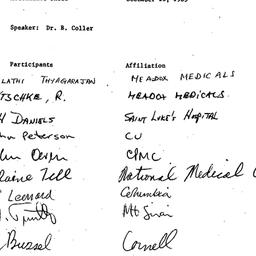 Speaker: Dr. B. Coller
Participants Affiliation
LATHI THYAGARAJAN MEADOX MEDICALS
TSCHKE, R. MEADOX MEDICALS
DANIELS SAINT LUKE'S HOSPITAL
Peterson CU
CPMC
laine Tell National Medical
Leonard Columbia
Mt Sinai
Bussel Cornell